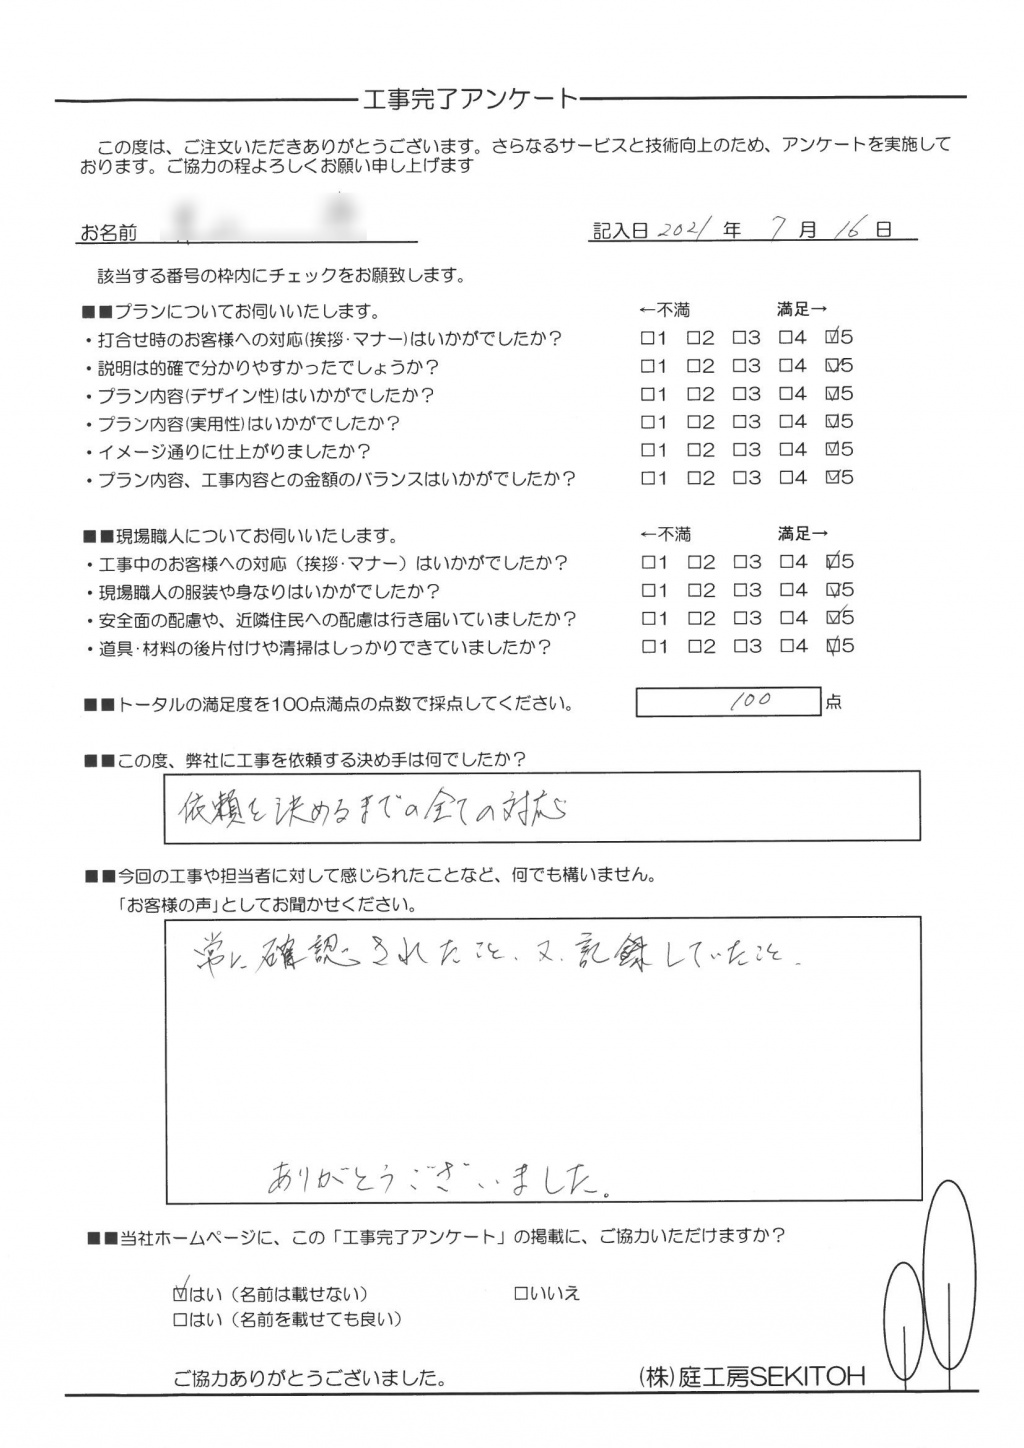 工事完了アンケート
この度は、ご注文いただきありがとうございます。さらなるサービスと技術向上のため、アンケートを実施して
おります。ご協力の程よろしくお願い申し上げます
お名前 記入日 2021 年 7 月 16 日
該当する番号の枠内にチェックをお願致します。
■■プランについてお伺いいたします。 ←不満 満足→
・打合せ時のお客様への対応(挨拶・マナー)はいかがでしたか? □1 □2 □3 □4 ☑5
・説明は的確で分かりやすかったでしょうか? □1 □2 □3 □4 ☑5
・プラン内容(デザイン性)はいかがでしたか? □1 □2 □3 □4 ☑5
・プラン内容(実用性)はいかがでしたか? □1 □2 □3 □4 ☑5
・イメージ通りに仕上がりましたか? □1 □2 □3 □4 ☑5
・プラン内容、工事内容との金額のバランスはいかがでしたか? □1 □2 □3 □4 ☑5
■■現場職人についてお伺いいたします。 ←不満 満足→
・工事中のお客様への対応（挨拶・マナー）はいかがでしたか? □1 □2 □3 □4 ☑5
・現場職人の服装や身なりはいかがでしたか? □1 □2 □3 □4 ☑5
・安全面の配慮や、近隣住民への配慮は行き届いていましたか? □1 □2 □3 □4 ☑5
・道具・材料の後片付けや清掃はしっかりできていましたか? □1 □2 □3 □4 ☑5
■■トータルの満足度を100点満点の点数で採点してください。 100 点
■■この度、弊社に工事を依頼する決め手は何でしたか?
依頼を決めるまでの全ての対応
■■今回の工事や担当者に対して感じられたことなど、何でも構いません。
「お客様の声」としてお聞かせください。
常に確認されたこと、又、記録していたこと、
ありがとうございました。
■■当社ホームページに、この「工事完了アンケート」の掲載に、ご協力いただけますか?
☑はい（名前は載せない） □いいえ
□はい（名前を載せても良い）
ご協力ありがとうございました。 (株)庭工房SEKITOH